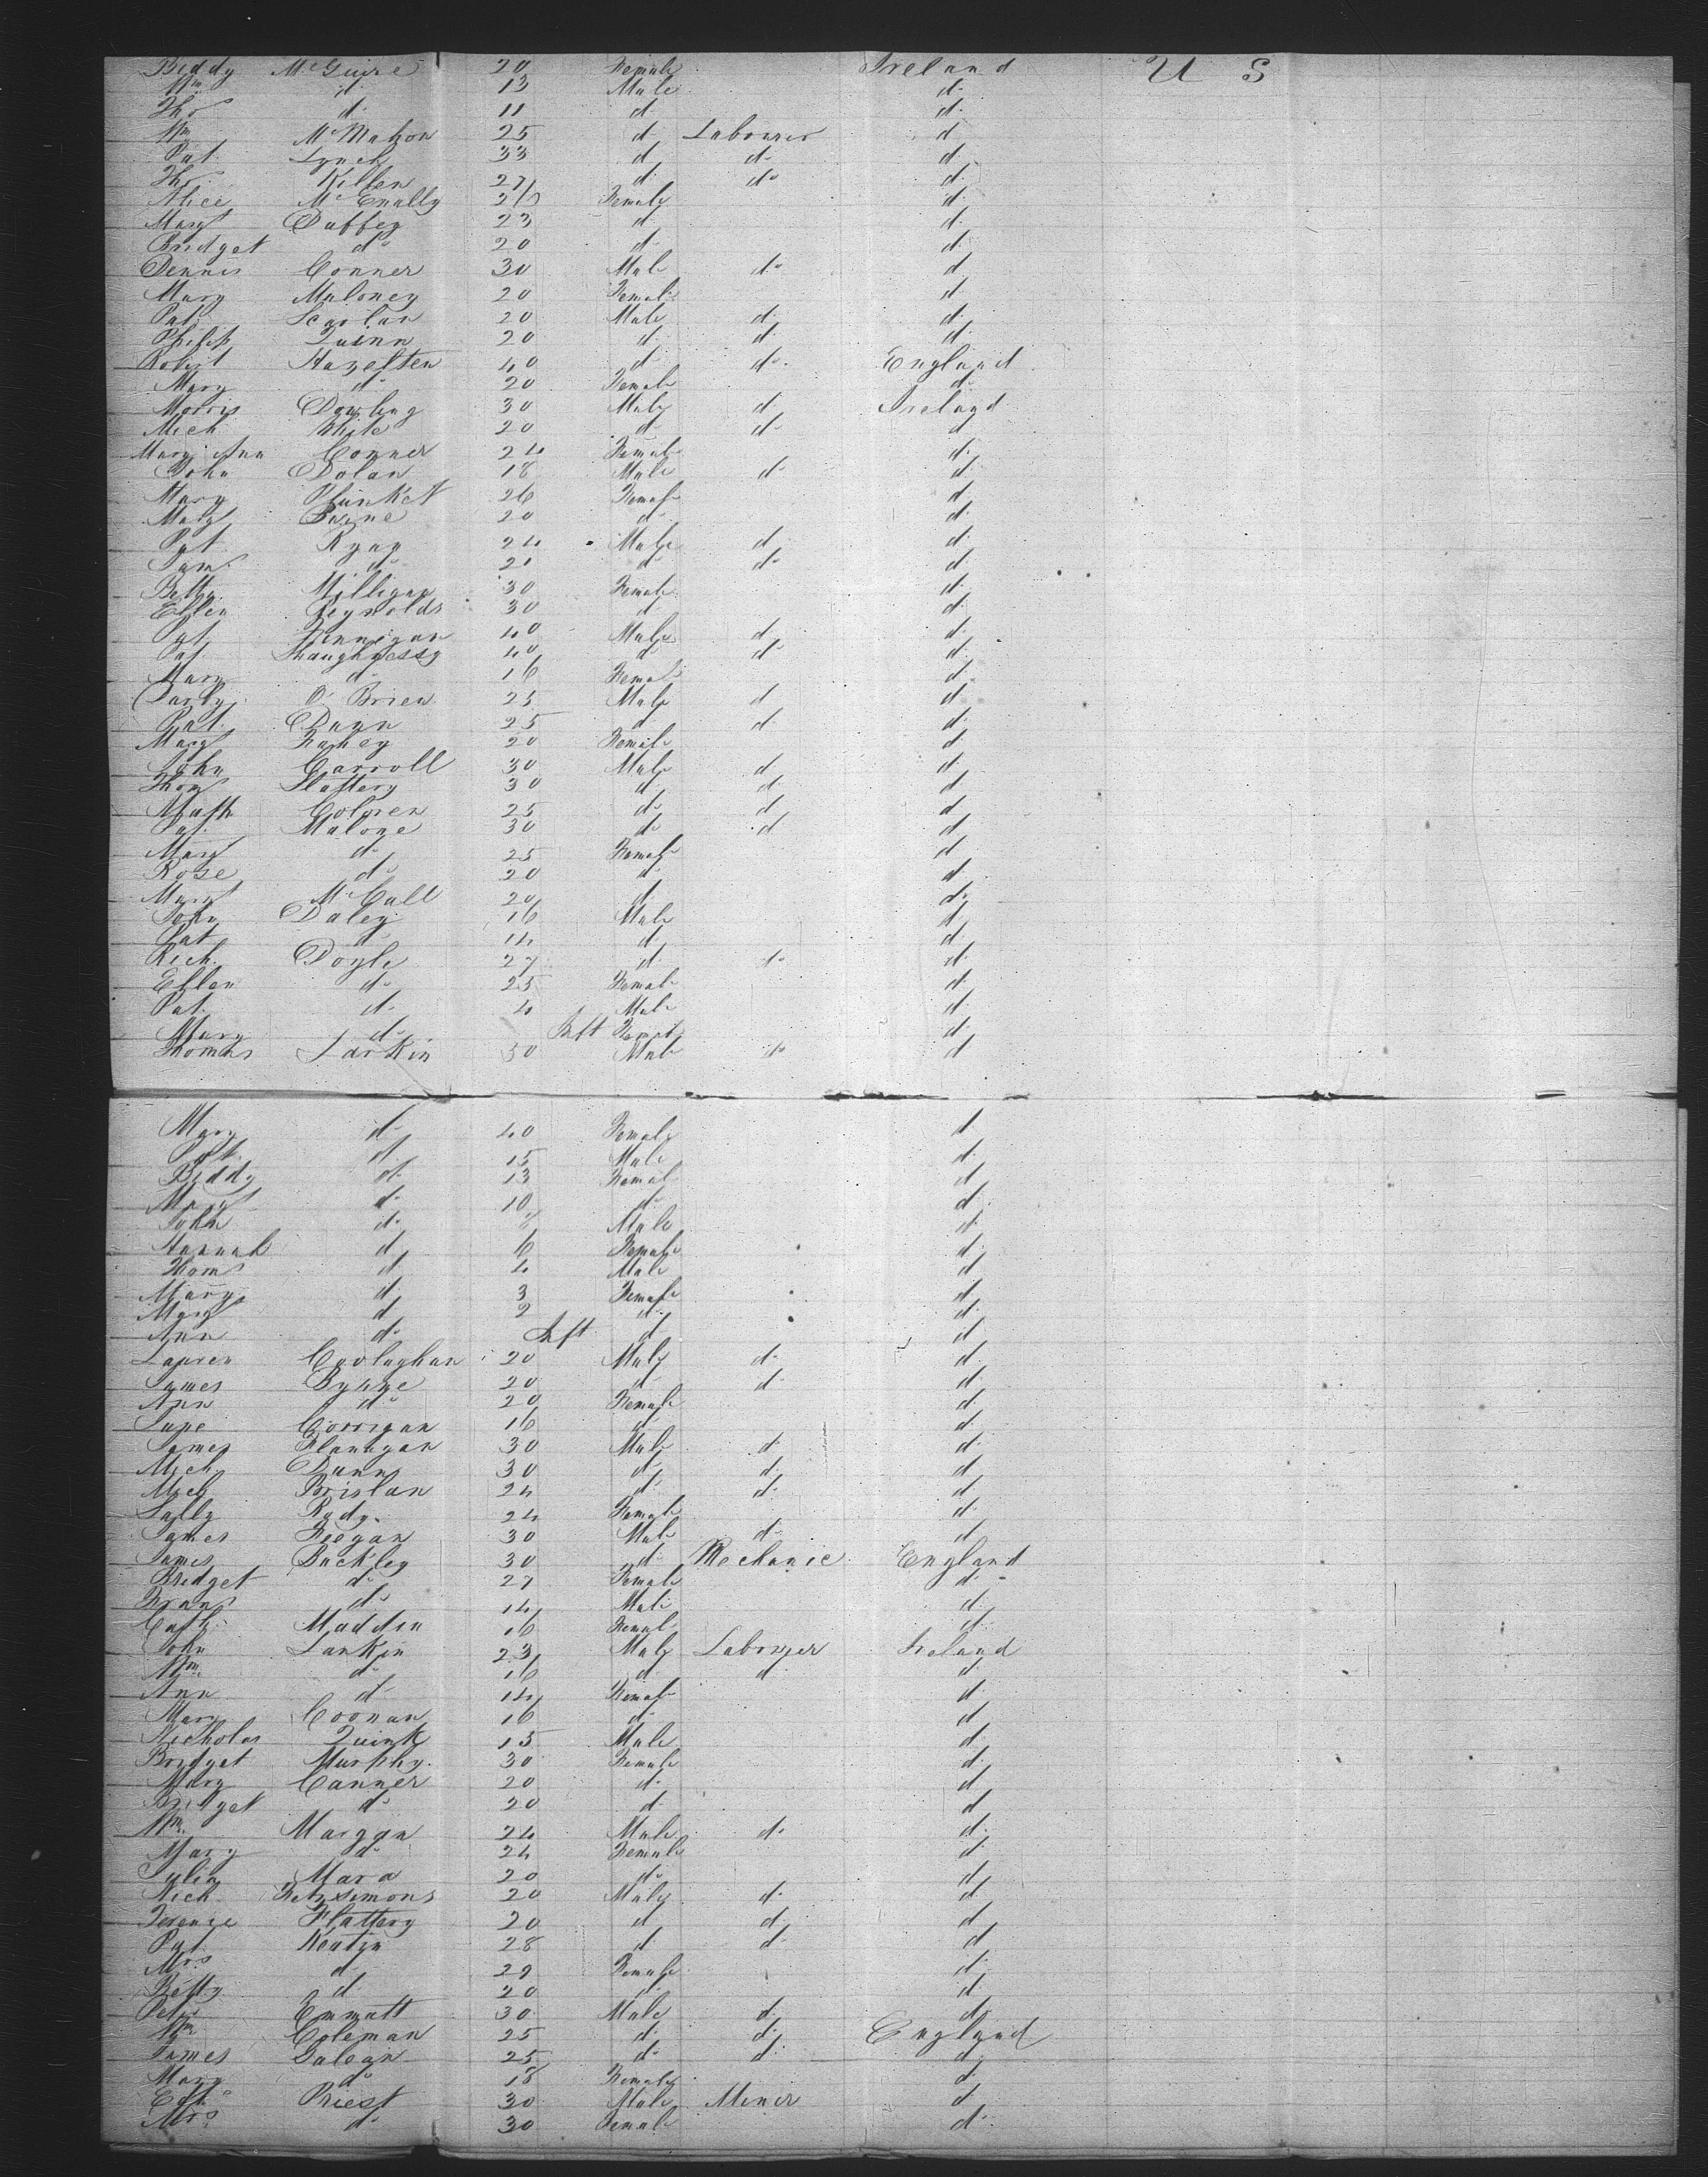 Biddy McGuire 20 Female Ireland U S
Wm d. 13 Male d.
Thos d. 11 d d.
Wm McMahon 25 d Labourer d
Pat. Lynch 33 d do d
Thos Killen 27 d. do d.
Alice McEnally 20 Female d.
Margt Duffey 23 d. d
Bridget do 20 d. d
Dennis Conner 30 Male do d
Mary Maloney 20 Female d
Pat. Scanlan 20 Male d. d.
Philip Quinn 20 d. d d.
Robert Hazelten 40 d do. England
Mary do 20 Female do
Morris Dowling 30 Male d Ireland
Mich White 20 d d d
Mary Ann Conner 24 Female d.
John Dolan 18 Male d. d.
Mary Plunket 26 Female d
Margt 20 d. d.
Pat Ryan 24 Male d d.
do 20 d do d.
Betty Milligan 30 Female d.
Ellen Reynolds 30 d d.
Pat. Finnigan 40 Male d. d.
Pat. Shaughnessy 40 d d d.
Mary d. 16 Female d.
Darby O'Brien 25 Male d d
Pat. Dunn 25 d d. d.
Margt Fahey 20 Female d
John Carroll 30 Male d d
Thom Slattery 30 d. d. d
Math 25 do d d
Pat. Malone 30 do d d
Margt do 25 Female d
Rose do 20 d. d
Margt McCall 20 d do
John Daley 16 Male d
Pat d 14 d. d.
Rich. Doyle 27 d. do d.
Ellen do 25 Female d.
Pat. d. 4 Male d.
Mary do Inft Female d.
Thomas Larkin 50 Male do d
Mary do 40 Female d
Pat. d. 15 Male d.
Biddy d. 13 Female d
Margt do 10 do d.
John do 8 Male d.
Hannah d 6 Female d.
Thoms d 4 Male d
Mary d 3 Female d
Margt d 2 d. d.
Ann do Inft d d
Lauren 20 Male d. d.
James Byrne 20 d. d d
Ann do 20 Female d
Jane Corrigan 16 d. d.
James Flanagan 30 Male d. d.
Mich Dunn 30 d. d. d
Mich Brislan 24 d. d. d
Sally Rudy 24 Female d.
James Feegan 30 Male do d
James Buckley 30 d. Mechanic England
Bridget do 27 Female d.
Frans do 14 Male d.
Cath. Madden 16 Female d.
John Larkin 23 Male Labourer Ireland
Wm do 16 d d d.
Ann d 14 Female d.
Mary Coonan 16 d. d
Nicholas Quirk 15 Male d.
Bridget Murphy. 30 Female d.
Mary Canner 20 d. d
Bridget do 20 d. d
Wm. Morgan 24 Male do d.
Mary do 24 Female d.
Julia Mara 20 do d
Rich. Fitzsimons 20 Male d. d
Terence Flattery 20 d d. d
Pat. 28 d d d
Mrs. d 29 Female d.
Betty d. 20 d. d
Peter Emmatt 30 Male d. d
Wm Coleman 25 d. d. England
James 25 do d. d
Mary do 18 Female d.
Edwd Priest 30 Male Miner d
Mrs. do 30 Female do.